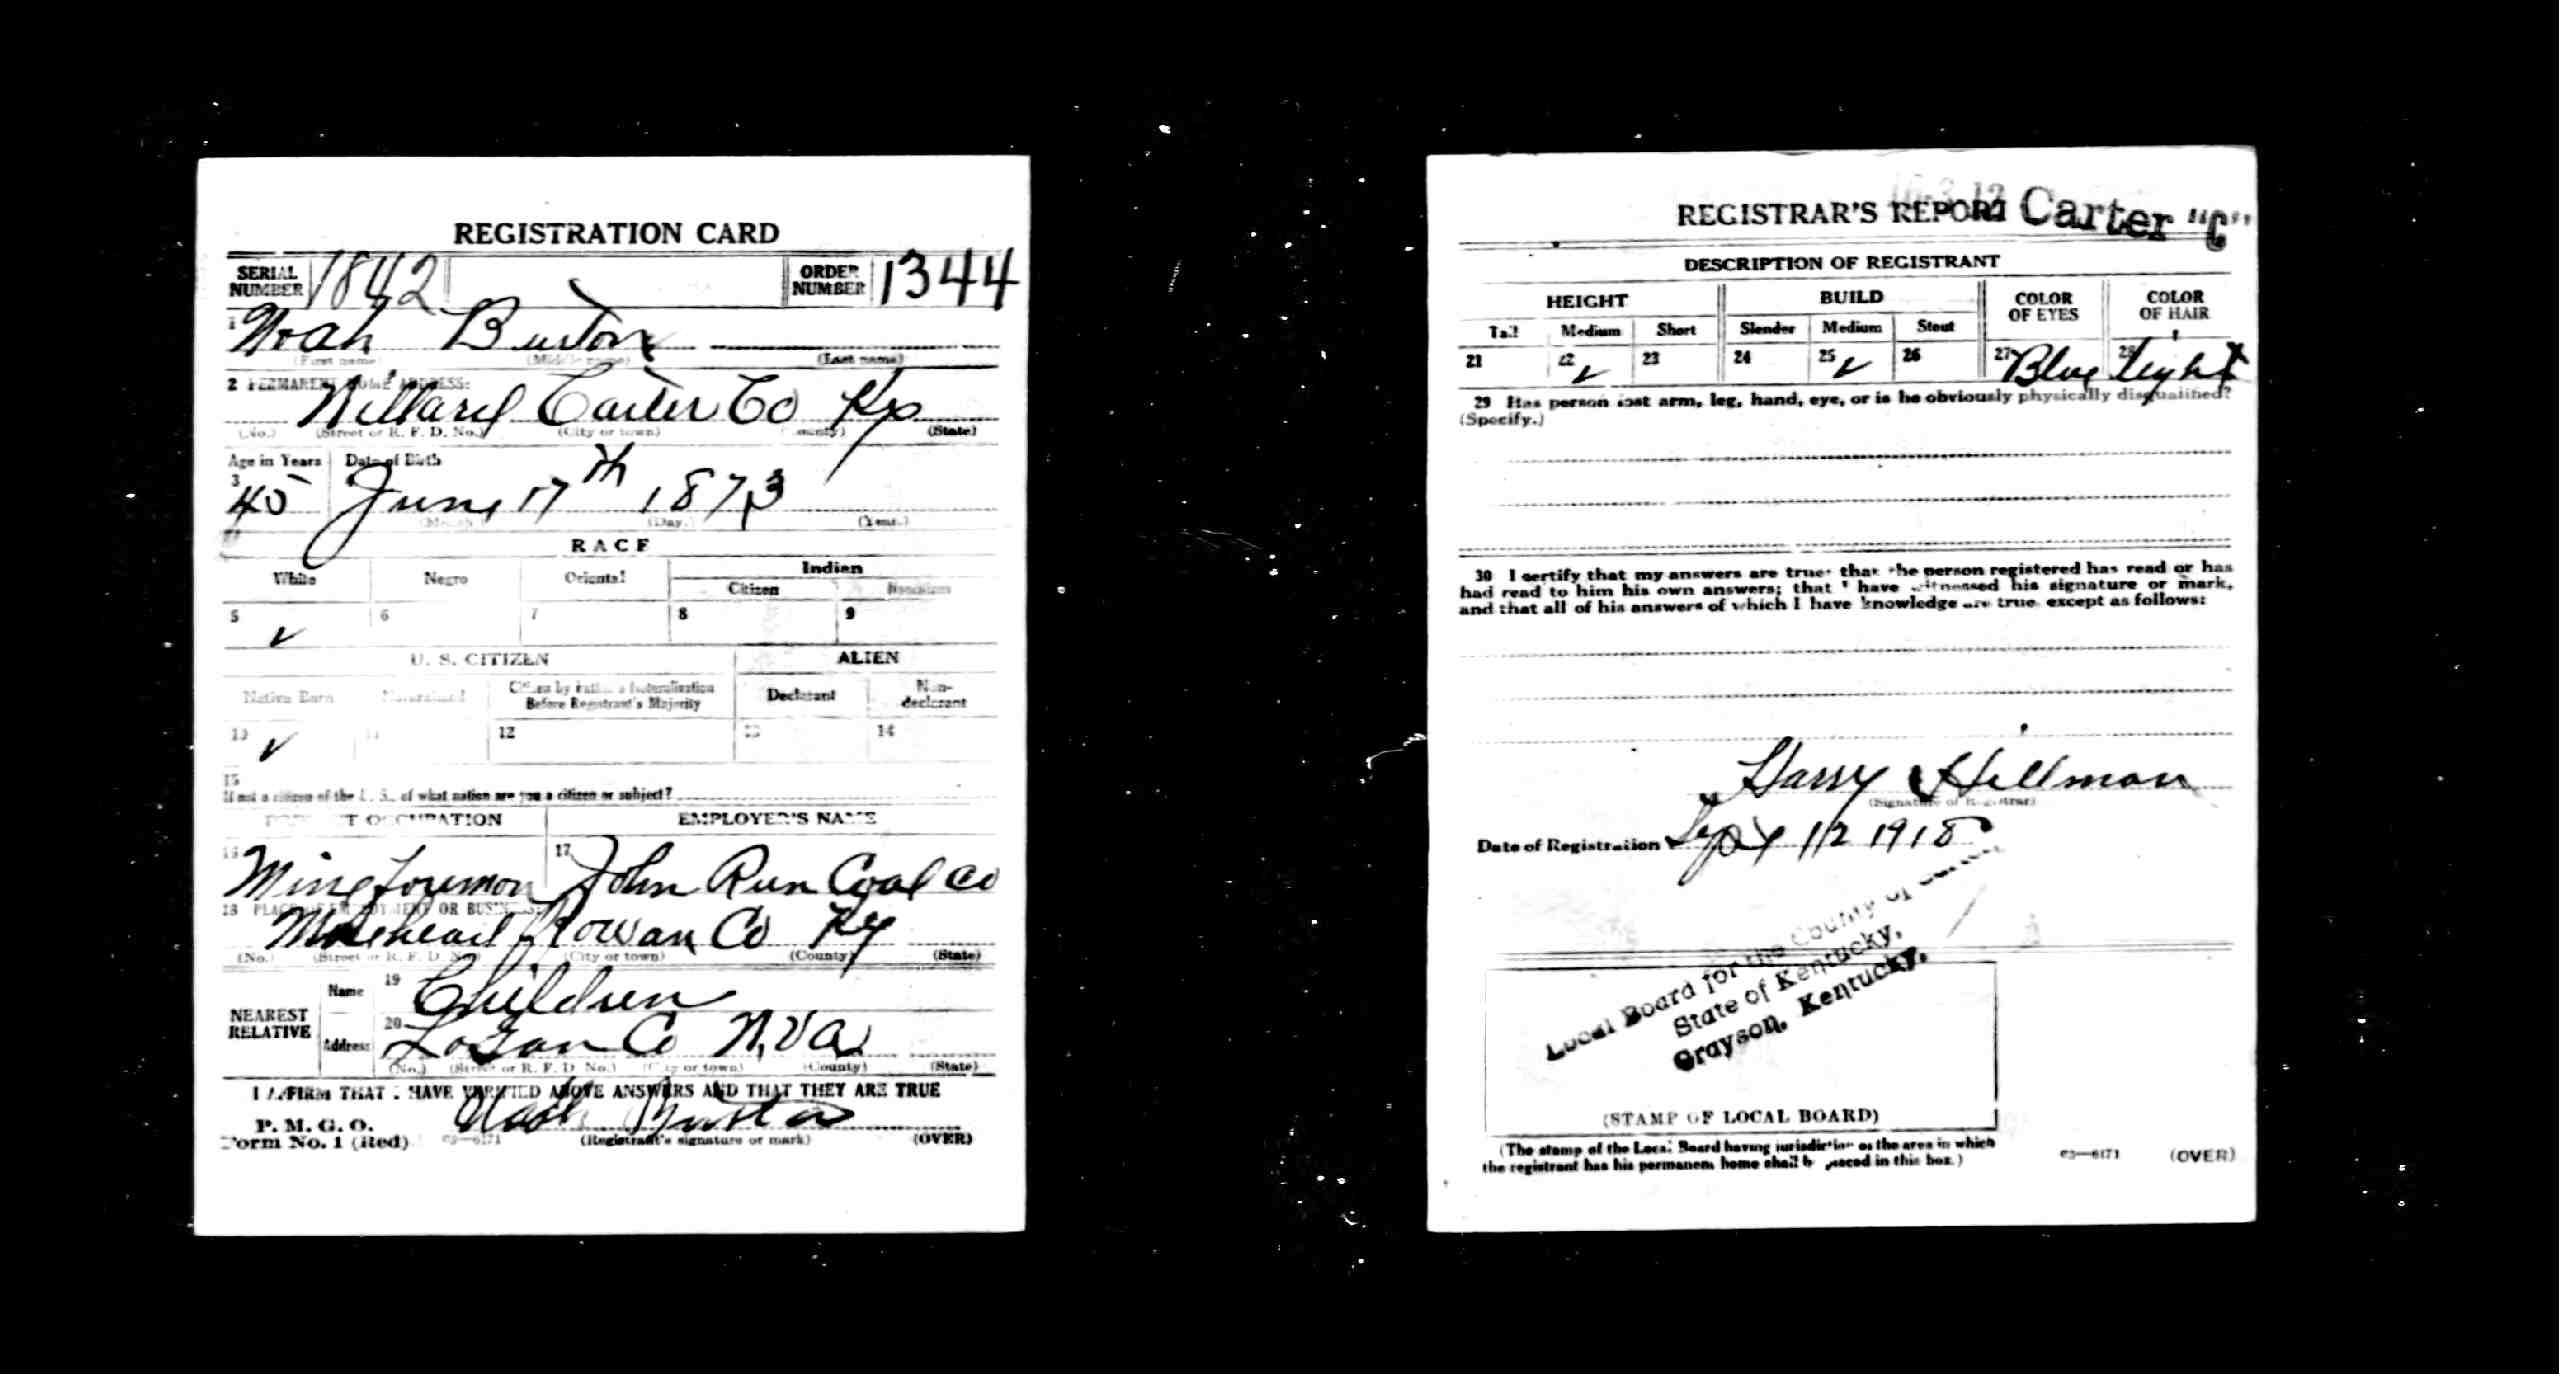 REGISTRATION CARD
SERIAL NUMBER 1842 ORDER NUMBER 1344
1 Noah Burton
(First name) (Middle name) (Last name)
2 PERMANENT HOME ADDRESS:
Willard Carter Co Ky
(No.) (Street or R. F. D. No.) (City or town) (County) (State)
Age in Years Date of Birth
3 45 June 17th 1873
(Month) (Day.) (Year.)
RACE
White Negro Oriental Indian
Citizen Noncitizen
5 ✓ 6 7 8 9
U. S. CITIZEN ALIEN
Native Born Naturalized Citizen by Father's Naturalization Before Registrant's Majority Declarant Non-declarant
10 ✓ 11 12 13 14
15
If not a citizen of the U. S., of what nation are you a citizen or subject?
PRESENT OCCUPATION EMPLOYER'S NAME
16 Mine foreman 17 John Run Coal Co
18 PLACE OF EMPLOYMENT OR BUSINESS:
Morehead Rowan Co Ky
(No.) (Street or R. F. D. No.) (City or town) (County) (State)
NEAREST RELATIVE
Name 19 Children
Address 20 Logan Co W. Va
(No.) (Street or R. F. D. No.) (City or town) (County) (State)
I AFFIRM THAT I HAVE VERIFIED ABOVE ANSWERS AND THAT THEY ARE TRUE
P. M. G. O.
Form No. 1 (Red) 03—6171 Noah Burton
(Registrant's signature or mark) (OVER)
REGISTRAR'S REPORT Carter "C"
DESCRIPTION OF REGISTRANT
HEIGHT BUILD COLOR OF EYES COLOR OF HAIR
Tall Medium Short Slender Medium Stout
21 22 ✓ 23 24 25 ✓ 26 27 Blue 28 Light
29 Has person lost arm, leg, hand, eye, or is he obviously physically disqualified?
(Specify.)
30 I certify that my answers are true; that the person registered has read or has
had read to him his own answers; that I have witnessed his signature or mark,
and that all of his answers of which I have knowledge are true, except as follows:
Harry Hillman
(Signature of Registrar)
Date of Registration Sept 12 1918
Local Board for the County of Carter
State of Kentucky,
Grayson, Kentucky.
(STAMP OF LOCAL BOARD)
(The stamp of the Local Board having jurisdiction of the area in which
the registrant has his permanent home shall be placed in this box.)
03—6171 (OVER)